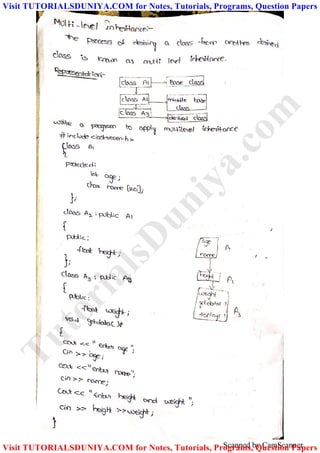 Visit TUTORIALSDUNIYA.COM for Notes, Tutorials, Programs, Question Papers
Multi-level Inheritance:-
The process of deriving a class from another derived
class is known as multi level inheritance.
Representation:-
class A1 Base class
class A2 middle base class
class A3 derived class
write a program to apply multilevel inheritance
# include <iostream.h>
class A1
{
protected:
int age;
char name [20];
};
class A2 : public A1
{
public:
float height;
};
class A3 : public A2
{
public:
float weight;
void getdata( )
{
cout << " enter age";
cin >> age;
cout << "enter name";
cin >> name;
cout << "enter height and weight";
cin >> height >> weight;
}
age
name
A1
height
A2
weight
getdata( )
display( )
A3
TutorialsDuniya.com
Scanned by CamScanner
Visit TUTORIALSDUNIYA.COM for Notes, Tutorials, Programs, Question Papers